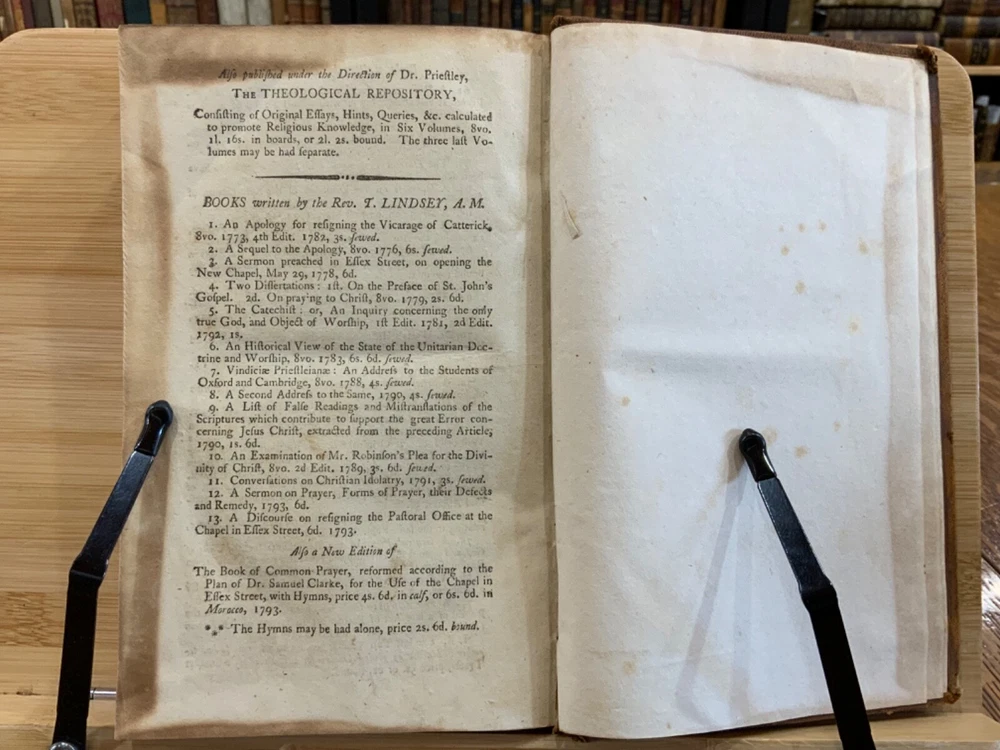 Alſo publiſhed under the Direction of Dr. Prieſtley,
THE THEOLOGICAL REPOSITORY,
Conſiſting of Original Eſſays, Hints, Queries, &c. calculated
to promote Religious Knowledge, in Six Volumes, 8vo.
1l. 16s. in boards, or 2l. 2s. bound. The three laſt Vo-
lumes may be had ſeparate.
BOOKS written by the Rev. T. LINDSEY, A. M.
1. An Apology for reſigning the Vicarage of Catterick,
8vo. 1773, 4th Edit. 1782, 3s. ſewed.
2. A Sequel to the Apology, 8vo. 1776, 6s. ſewed.
3. A Sermon preached in Eſſex Street, on opening the
New Chapel, May 29, 1778, 6d.
4. Two Diſſertations: 1ſt. On the Preface of St. John's
Goſpel. 2d. On praying to Chriſt, 8vo. 1779, 2s. 6d.
5. The Catechiſt: or, An Inquiry concerning the only
true God, and Object of Worſhip, 1ſt Edit. 1781, 2d Edit.
1792, 1s.
6. An Hiſtorical View of the State of the Unitarian Doc-
trine and Worſhip, 8vo. 1783, 6s. 6d. ſewed.
7. Vindiciæ Prieſtleianæ: An Addreſs to the Students of
Oxford and Cambridge, 8vo. 1788, 4s. ſewed.
8. A Second Addreſs to the Same, 1790, 4s. ſewed.
9. A Liſt of Falſe Readings and Miſtranſlations of the
Scriptures which contribute to ſupport the great Error con-
cerning Jeſus Chriſt, extracted from the preceding Article,
1790, 1s. 6d.
10. An Examination of Mr. Robinſon's Plea for the Divi-
nity of Chriſt, 8vo. 2d Edit. 1789, 3s. 6d. ſewed.
11. Converſations on Chriſtian Idolatry, 1791, 3s. ſewed.
12. A Sermon on Prayer, Forms of Prayer, their Defects
and Remedy, 1793, 6d.
13. A Diſcourſe on reſigning the Paſtoral Office at the
Chapel in Eſſex Street, 6d. 1793.
Alſo a New Edition of
The Book of Common Prayer, reformed according to the
Plan of Dr. Samuel Clarke, for the Uſe of the Chapel in
Eſſex Street, with Hymns, price 4s. 6d. in calf, or 6s. 6d. in
Morocco, 1793.
⁂ The Hymns may be had alone, price 2s. 6d. bound.